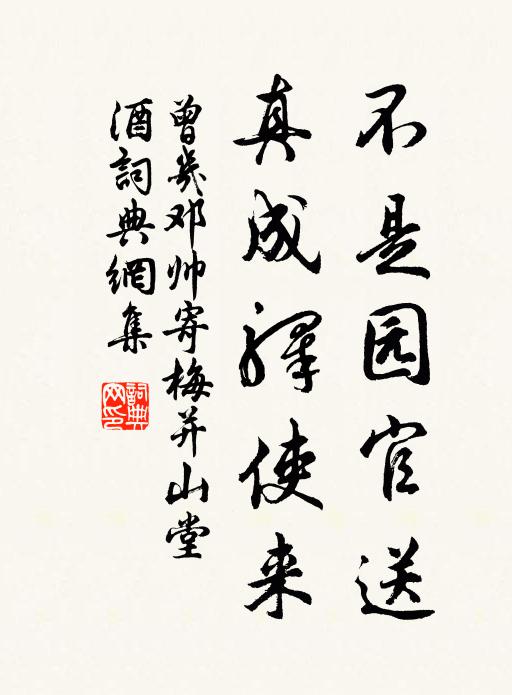 不是园官送
真成驛使来
曾幾邓帅寄梅并山堂
酒詞典網集
詞典网印